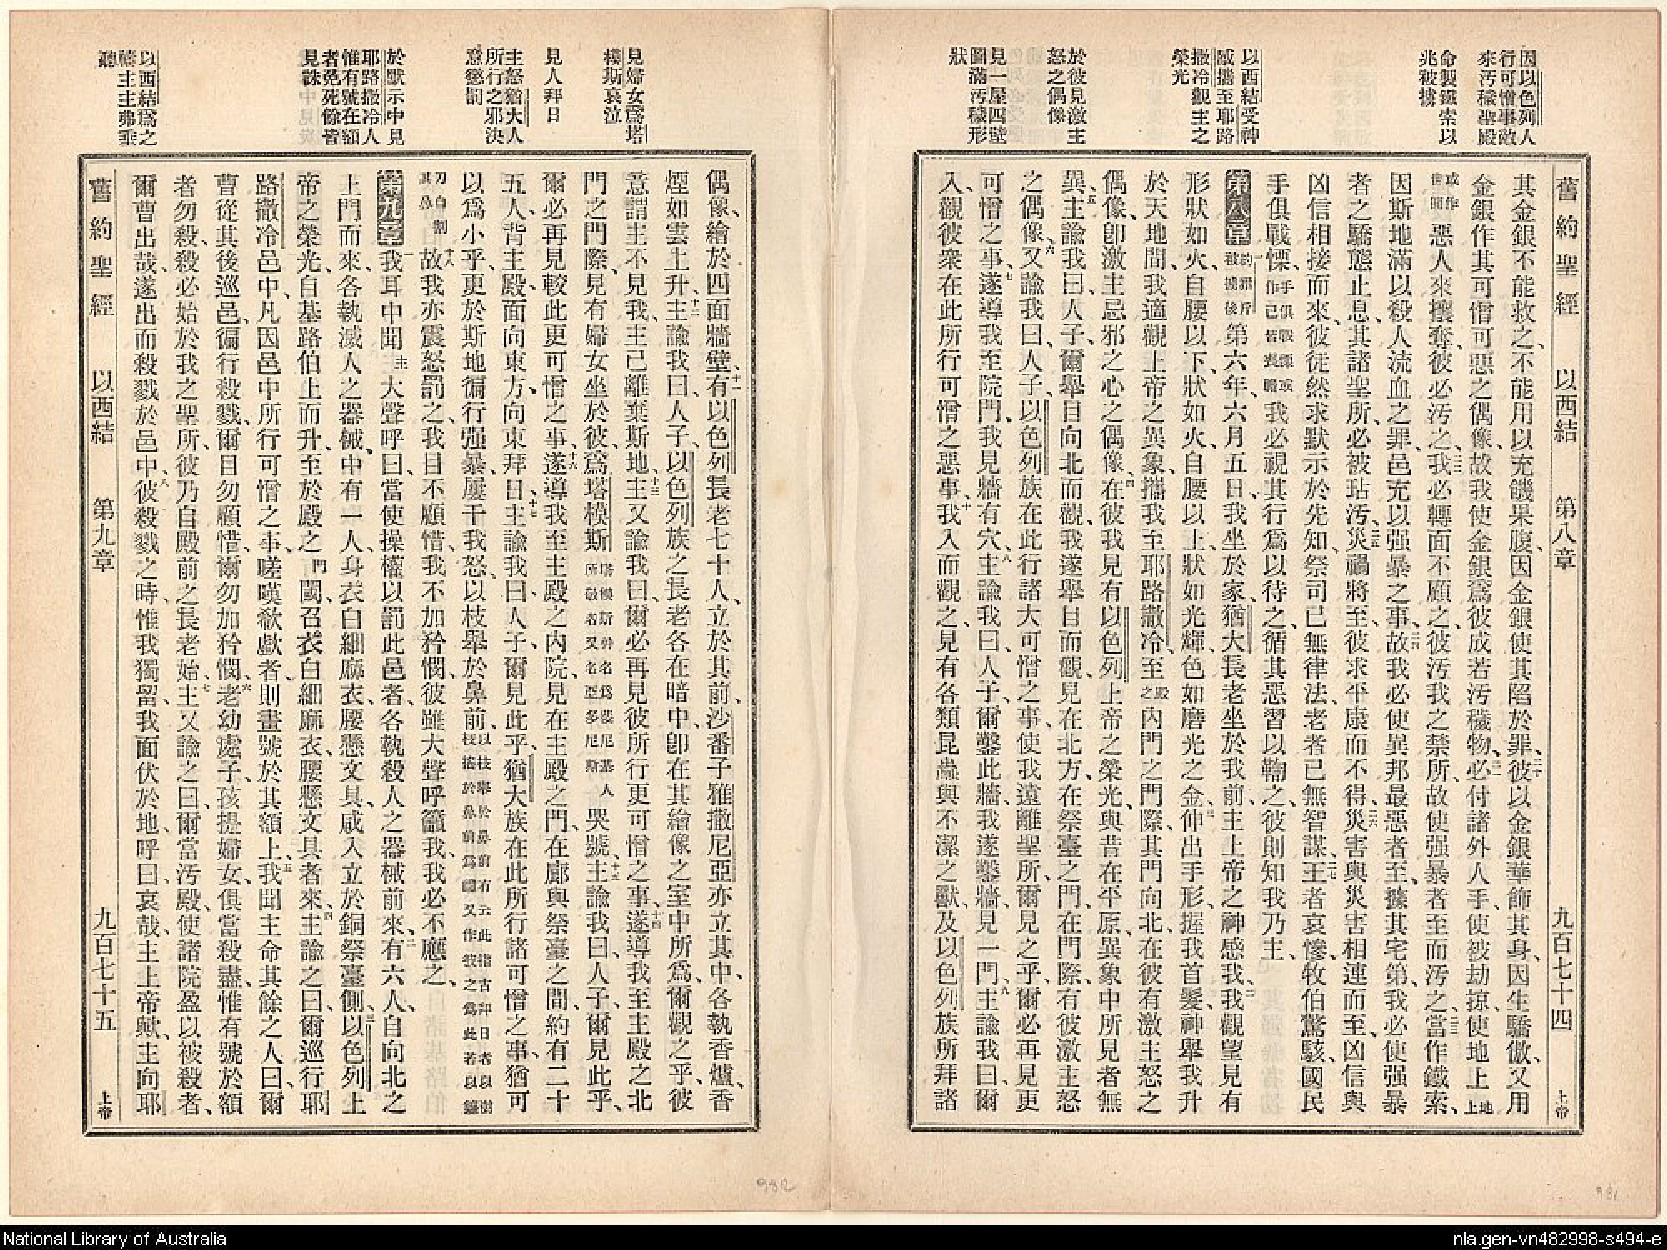 因以色列人
行可憎事故
來污穢聖殿
命製鐵索以
兆被擄
以西結受神
感攜至耶路
撒冷觀主之
榮光
於彼見激主
怒之偶像
見一屋四壁
圖滿污穢形
狀
舊約聖經 以西結 第八章 九百七十四 上帝
其金銀不能救之、不能用以充饑果腹、因金銀使其陷於罪、彼以金銀華飾其身、因生驕傲、又用
金銀作其可憎可惡之偶像、故我使金銀爲彼成若污穢物、必付諸外人手、使被劫掠、使地上
惡人來攘奪、彼必污之、我必轉面不顧之、彼污我之禁所、故使强暴者至而污之、當作鐵索、
因斯地滿以殺人流血之罪、邑充以强暴之事、故我必使異邦最惡者至、據其宅第、我必使强暴
者之驕態止息、其諸聖所必被玷污、災禍將至、彼求平康而不得、災害與災害相連而至、凶信與
凶信相接而來、彼徒然求默示於先知、祭司已無律法、老者已無智謀、王者哀慘、牧伯驚駭、國民
手俱戰慄、我必視其行爲以待之、循其惡習以鞫之、彼則知我乃主、
第八章 第六年六月五日、我坐於家、猶大長老坐於我前、主上帝之神感我、我觀望見有
形狀如火、自腰以下狀如火、自腰以上狀如光輝、色如磨光之金、伸出手形、握我首髮、神舉我升
於天地間、我適觀上帝之異象、攜我至耶路撒冷、至殿之內門之門際、其門向北、在彼有激主怒之
偶像、卽激主忌邪之心之偶像、在彼我見有以色列上帝之榮光、與昔在平原異象中所見者無
異、主諭我曰、人子、爾舉目向北而觀、我遂舉目而觀、見在北方、在祭臺之門、在門際、有彼激主怒
之偶像、又諭我曰、人子、以色列族在此行諸大可憎之事、使我遠離聖所、爾見之乎、爾必再見更
可憎之事、遂導我至院門、我見牆有穴、主諭我曰、人子、爾鑿此牆、我遂鑿牆、見一門、主諭我曰、爾
入、觀彼衆在此所行可憎之惡事、我入而觀之、見有各類昆蟲、與不潔之獸、及以色列族所拜諸
見婦女爲塔
模斯哀泣
見人拜日
主怒猶大人
所行之邪決
意懲罰
於默示中見
耶路撒冷人
惟有號在額
者免死餘皆
見誅
以西結爲之
禱主主弗垂
聽
偶像、繪於四面牆壁、有以色列長老七十人立於其前、沙番子雅撒尼亞亦立其中、各執香爐、香
煙如雲上升、主諭我曰、人子、以色列族之長老各在暗中、卽在其繪像之室中所爲、爾觀之乎、彼
意謂主不見我、主已離棄斯地、主又諭我曰、爾必再見彼所行更可憎之事、遂導我至主殿之北
門之門際、見有婦女坐於彼、爲塔模斯哭號、主諭我曰、人子、爾見此乎、
爾必再見較此更可憎之事、遂導我至主殿之內院、見在主殿之門、在廊與祭臺之間、約有二十
五人、背主殿、面向東方、向東拜日、主諭我曰、人子、爾見此乎、猶大族在此所行諸可憎之事、猶可
以爲小乎、更於斯地徧行强暴、屢干我怒、以枝舉於鼻前、
故我亦震怒罰之、我目不顧惜、我不加矜憫、彼雖大聲呼籲我、我必不應之、
第九章 我耳中聞主大聲呼曰、當使操權以罰此邑者、各執殺人之器械前來、有六人自向北之
上門而來、各執滅人之器械、中有一人身衣白細麻衣、腰懸文具、咸入立於銅祭臺側、以色列上
帝之榮光、自基路伯上而升、至於殿之門閾、召衣白細麻衣、腰懸文具者來、主諭之曰、爾巡行耶
路撒冷邑中、凡因邑中所行可憎之事嗟嘆欷歔者、則畫號於其額上、我聞主命其餘之人曰、爾
曹從其後巡邑、徧行殺戮、爾目勿顧惜、爾勿加矜憫、老幼處子孩提婦女俱當殺盡、惟有號於額
者勿殺、殺必始於我之聖所、彼乃自殿前之長老始、主又諭之曰、爾當污殿、使諸院盈以被殺者、
爾曹出哉、遂出而殺戮於邑中、彼殺戮之時、惟我獨留、我面伏於地、呼曰、哀哉、主上帝歟、主向耶
舊約聖經 以西結 第九章 九百七十五 上帝
982
981
National Library of Australia
nla.gen-vn482998-s494-e